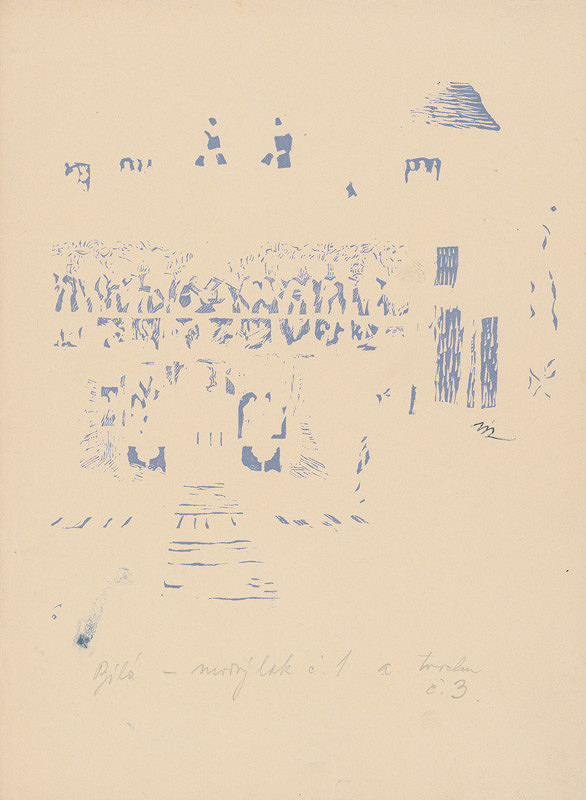 Bílá – modrý lak č. 1 a trochu
č. 3